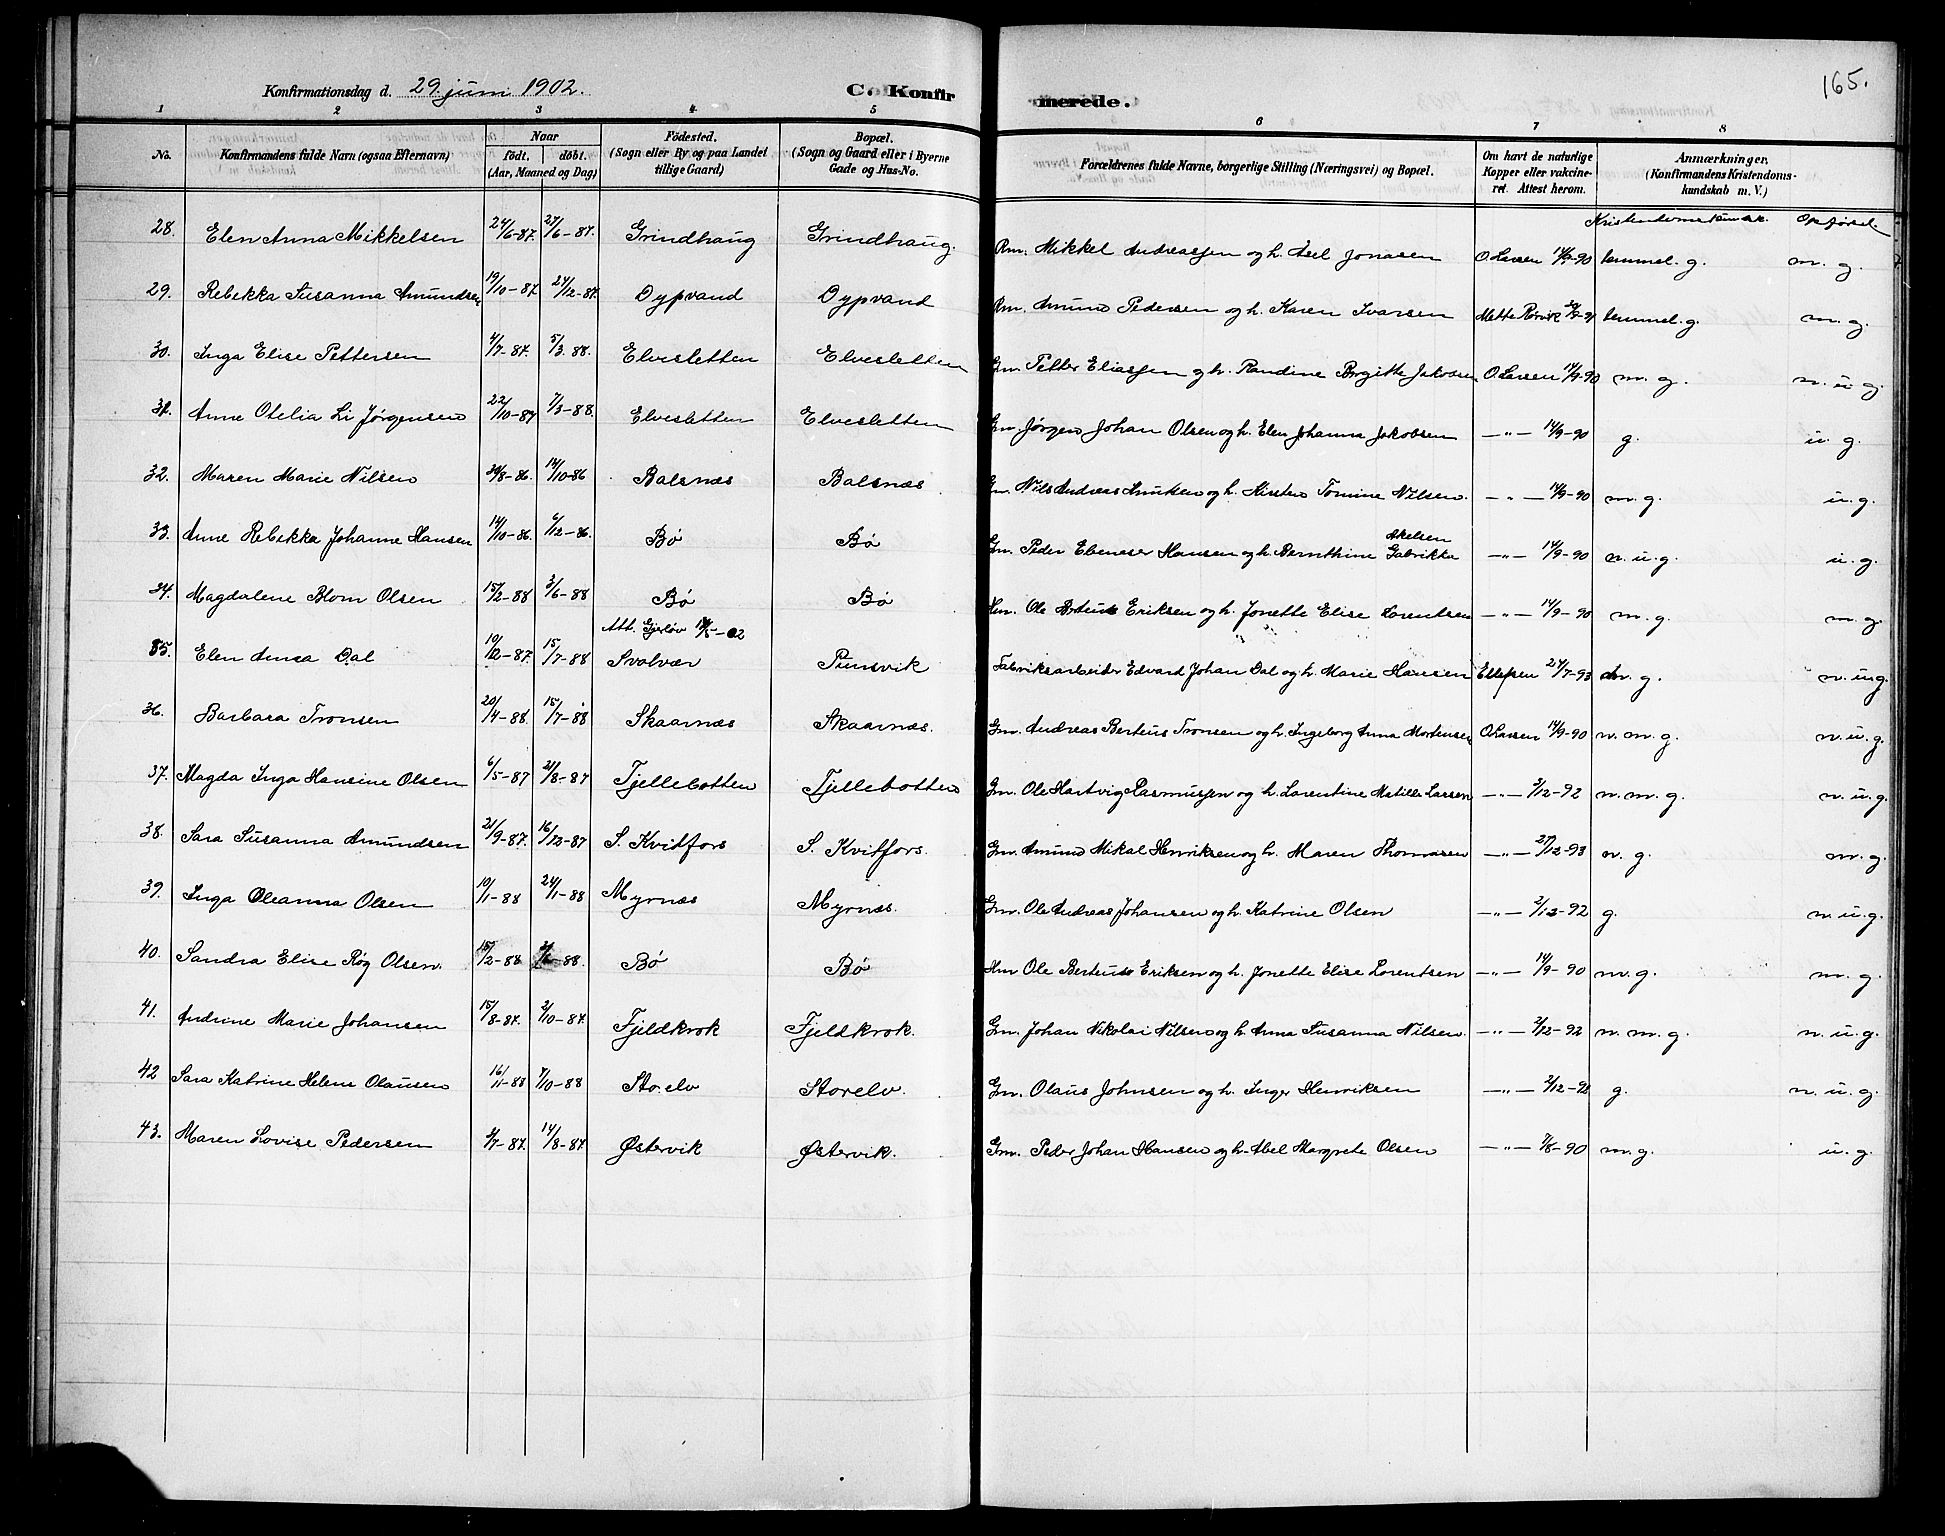 Konfirmationsdag d. 29. juni 1902. C. Konfirmerede. 165.
1 2 3 4 5 6 7 8
No. Konfirmandens fulde Navn (ogsaa Efternavn) Naar født. døbt. (Aar, Maaned og Dag) Fødested. (Sogn eller By og paa Landet tillige Gaard) Bopæl. (Sogn og Gaard eller i Byerne Gade og Hus-No. Forældrenes fulde Navne, borgerlige Stilling (Næringsvei) og Bopæl. Om havt de naturlige Kopper eller vakcineret. Attest herom. Anmærkninger. (Konfirmandens Kristendomskundskab m. V.)
Opførsel
28. Elen Anna Mikkelsen 24/6-87. 27/6-87. Grindhaug Grindhaug. Rm. Mikkel Andreassen og h. Axel Jonasen O. Larsen 14/9-90 temmel. g. m. g.
29. Rebekka Susanna Amundsen 19/10-87. 27/12-87. Dypvand Dypvand Rm. Amund Pedersen og h. Karen Ivarsen Mette Rørvik temmel. g. m. g.
30. Inga Elise Pettersen 4/7-87. 5/3-88. Elvesletten Elvesletten Gm. Petter Eliassen og h. Randine Birgitte Jakobsen O. Larsen 14/9-90 m. g. n. u. g.
31. Anne Otelia Li Jørgensen 22/10-87 7/3-88. Elvesletten Elvesletten Gm. Jørgen Johan Olsen og h. Elen Johanna Jakobsen —"— 14/9-90 g. u. g.
32. Maren Marie Nilsen 30/8-86. 14/10-86 Balsnæs Balsnæs Gm. Nils Andreas Knutsen og h. Kirsten Tomine Nilsen. —"— 14/9-90 m. g. u. g.
33. Anne Rebekka Johanne Hansen 14/10-86. 6/12-86. Bø Bø Gm. Peder Ebeneser Hansen og h. Bernthine Gabrikke Akelsen —"— 14/9-90 n. u. g. u. g.
34. Magdalene Blom Olsen 15/2-88 3/6-88 Bø Bø Hm. Ole Berteus Eriksen og h. Jonette Elise Lorentsen —"— 14/9-90 m. g. m. g.
Att. Gjerløv
35. Elen Anna Dal 10/12-87. 15/7-88 Svolvær Punsvik Fabriksarbeider Edvard Johan Dal og h. Marie Hansen Ellefsen 24/7-93 m. g. n. u. g.
36. Barbara Tronsen 20/4-88. 15/7-88 Skaarnæs Skaarnæs. Gm. Andreas Berteus Tronsen og h. Ingeborg Anna Mortensen O. Larsen 14/9-90 n. m. g. n. u. g.
37. Magda Inga Hansine Olsen 6/5-87 21/8-87 Fjellebotten Fjellebotten Gm. Ole Hartvig Rasmussen og h. Lorentine Matille Larsen —"— 2/12-92 n. m. g. n. u. g.
38. Sara Susanna Amundsen 21/9-87. 16/12-87 S. Kvitfors S. Kvitfors. Gm. Amund Mikal Henriksen og h. Maren Thomasen —"— 27/12-93 n. g. m. g.
39. Inga Oleanna Olsen 10/1-88 24/1-88 Myrnæs Myrnæs. Gm. Ole Andreas Johansen og h. Katrine Olsen —"— 2/12-92 g. n. u. g.
40. Sandra Elise Røg Olsen. 15/2-88 3/6-88. Bø Bø Hm Ole Berteus Eriksen og h. Jonette Elise Lorentsen —"— 14/9-90 m. g. m. g.
41. Andrine Marie Johansen 15/8-87. 2/10-87. Fjeldkrok Fjeldkrok. Gm. Johan Nikolai Nilsen og h. Anna Susanna Nilsen. —"— 2/12-92 n. m. g. n. u. g.
42 Sara Katrine Helene Olausen 16/11-88 7/10-88 Storelv Storelv. Gm. Olaus Johnsen og h. Inger Henriksen —"— 2/12-92 g. n. u. g.
43. Maren Lovise Pedersen 4/7-87. 14/8-87 Østervik Østervik. Gm. Peder Johan Hansen og h. Abel Margrete Olsen —"— 7/8-90 m. g. u. g.